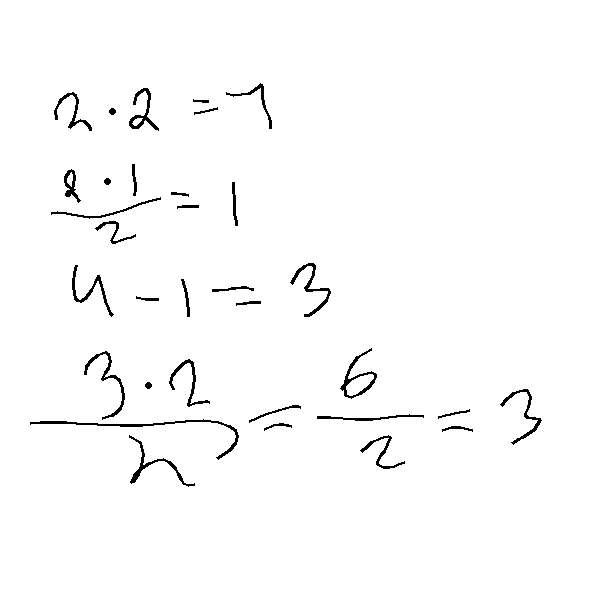 2 · 2 = 7
2 · 1 / 2 = 1
4 - 1 = 3
3 · 2 / 2 = 6 / 2 = 3